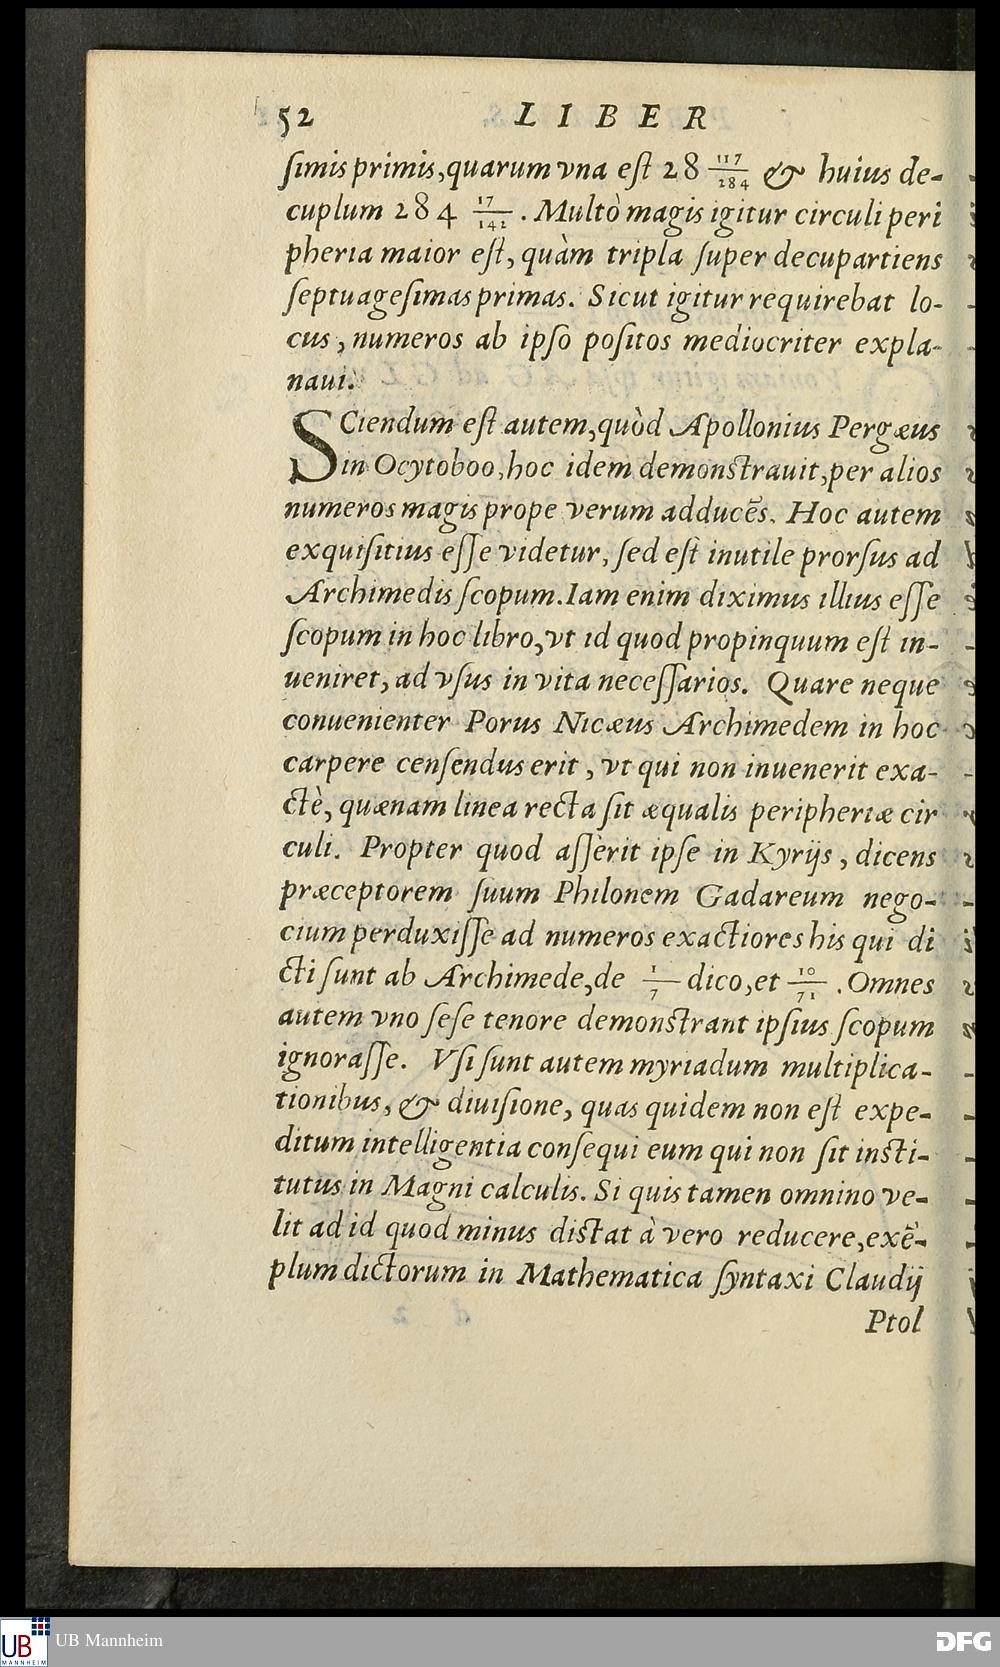 52 LIBER
ſimis primis, quarum vna eſt 28 117/284 & huius de-
cuplum 284 17/142 . Multò magis igitur circuli peri
pheria maior eſt, quàm tripla ſuper decupartiens
ſeptuageſimas primas. Sicut igitur requirebat lo-
cus, numeros ab ipſo poſitos mediocriter expla-
naui.
SCiendum eſt autem, quòd Apollonius Pergæus
in Ocytoboo, hoc idem demonſtrauit, per alios
numeros magis prope verum adducẽs. Hoc autem
exquiſitius eſſe videtur, ſed eſt inutile prorſus ad
Archimedis ſcopum. Iam enim diximus illius eſſe
ſcopum in hoc libro, vt id quod propinquum eſt in-
ueniret, ad vſus in vita neceſſarios. Quare neque
conuenienter Porus Nicæus Archimedem in hoc
carpere cenſendus erit, vt qui non inuenerit exa-
ctè, quænam linea recta ſit æqualis peripheriæ cir
culi. Propter quod aſſerit ipſe in Kyrijs, dicens
præceptorem ſuum Philonem Gadareum nego-
cium perduxiſſe ad numeros exactiores his qui di
cti ſunt ab Archimede, de 1/7 dico, et 10/71 . Omnes
autem vno ſeſe tenore demonſtrant ipſius ſcopum
ignoraſſe. Vſi ſunt autem myriadum multiplica-
tionibus, & diuiſione, quas quidem non eſt expe-
ditum intelligentia conſequi eum qui non ſit inſti-
tutus in Magni calculis. Si quis tamen omnino ve-
lit ad id quod minus diſtat à vero reducere, exẽ-
plum dictorum in Mathematica ſyntaxi Claudij
Ptol
UB MANNHEIM
UB Mannheim
DFG